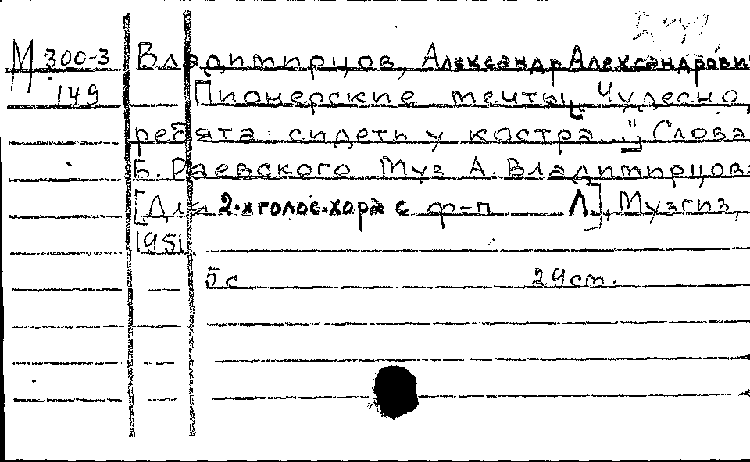 М 300-3 Владимирцов, Александр Александрович
149 Пионерские мечты „Чудесно,
ребята сидеть у костра..." Слова
Б. Раевского Муз А. Владимирцова
[Для 2-х голос. хора с ф-п Л.], Музгиз,
1951
5 с 29 cm.